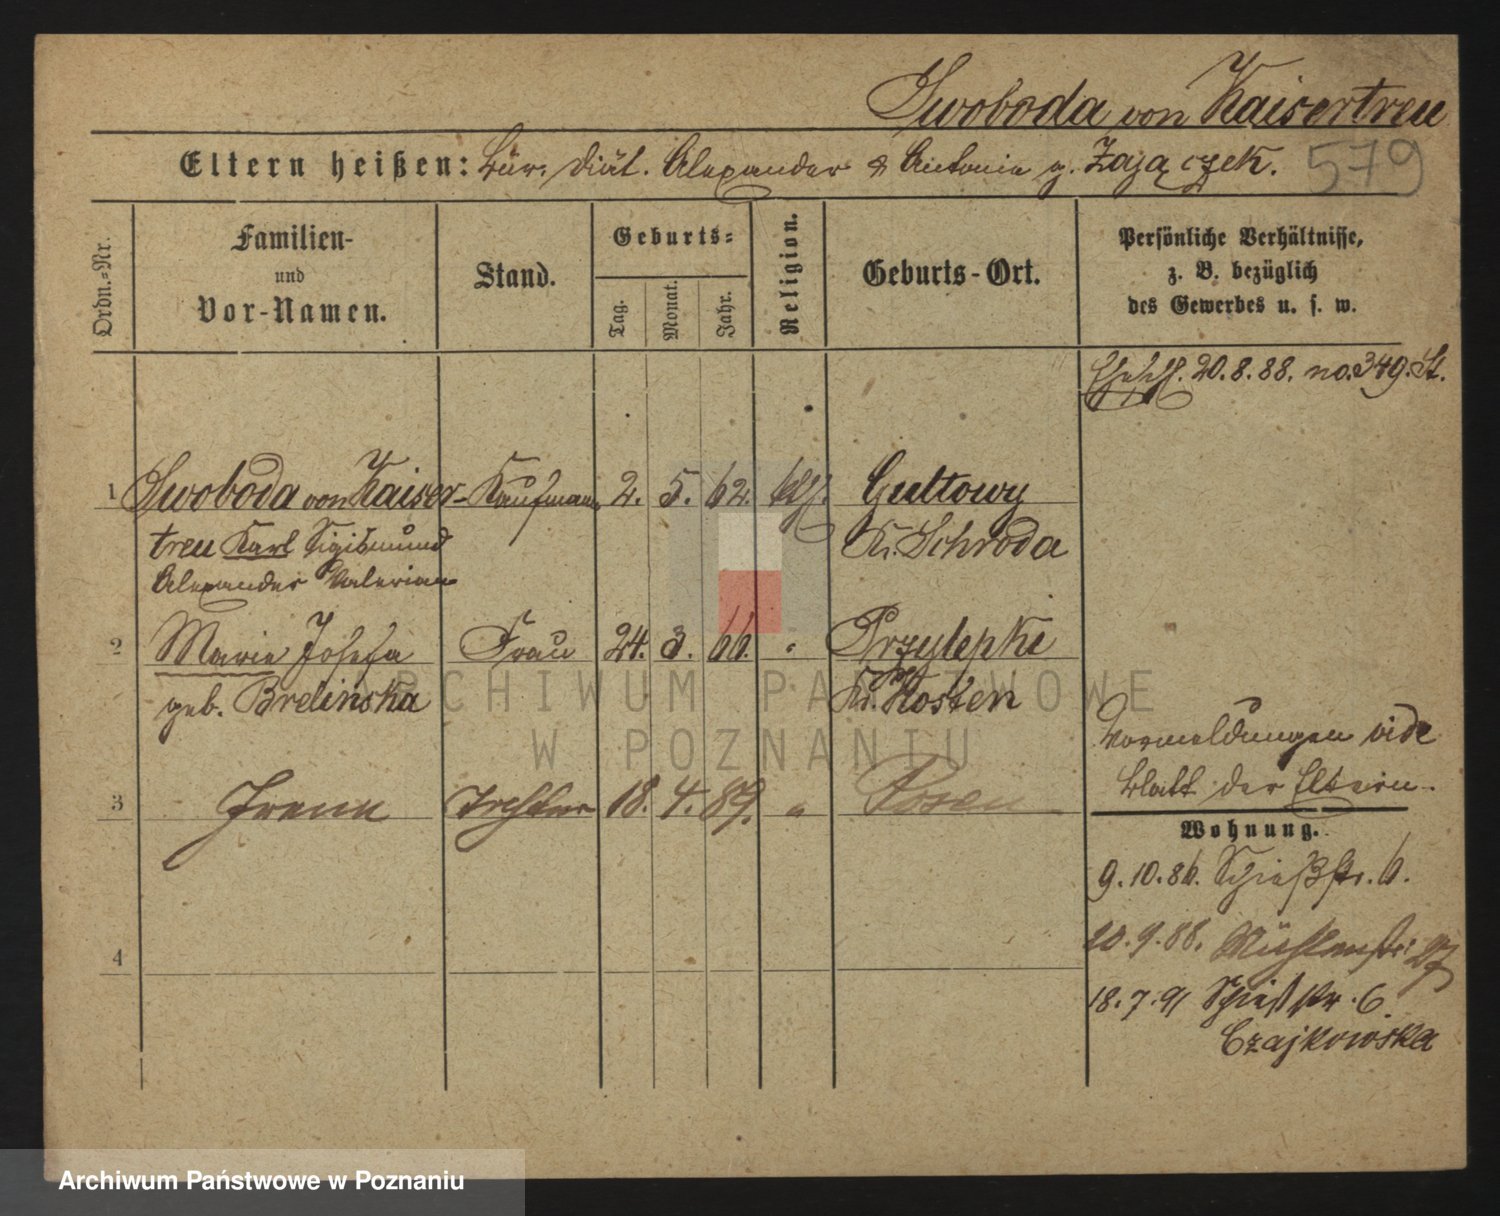 Swoboda von Kaisertreu
Eltern heißen: Bür. Diät. Alexander & Antonie g. Zajączek. 579
Ordn.-Nr.
Familien-
und
Vor-Namen.
Stand.
Geburts-
Tag.
Monat.
Jahr.
Religion.
Geburts-Ort.
Persönliche Verhältnisse,
z. B. bezüglich
des Gewerbes u. s. w.
Eheschl. 20.8.88. no. 349. St.
1 Swoboda von Kaiser- Kaufmann 2. 5. 62. kth. Gultowy
treu Karl Sigismund Kr. Schroda
Alexander Valerian
2 Marie Josefa Frau 24. 3. 66. " Przylepki
geb. Brelinska Kr. Kosten
Vormeldungen vide
Blatt der Eltern.
3 Irene Tochter 18. 4. 89. " Posen
Wohnung.
9.10.86. Schießstr. 6.
10.9.88. Mühlenstr. 27
4
18.7.91 Schießstr. 6
Czajkowska
ARCHIWUM PAŃSTWOWE
W POZNANIU
Archiwum Państwowe w Poznaniu